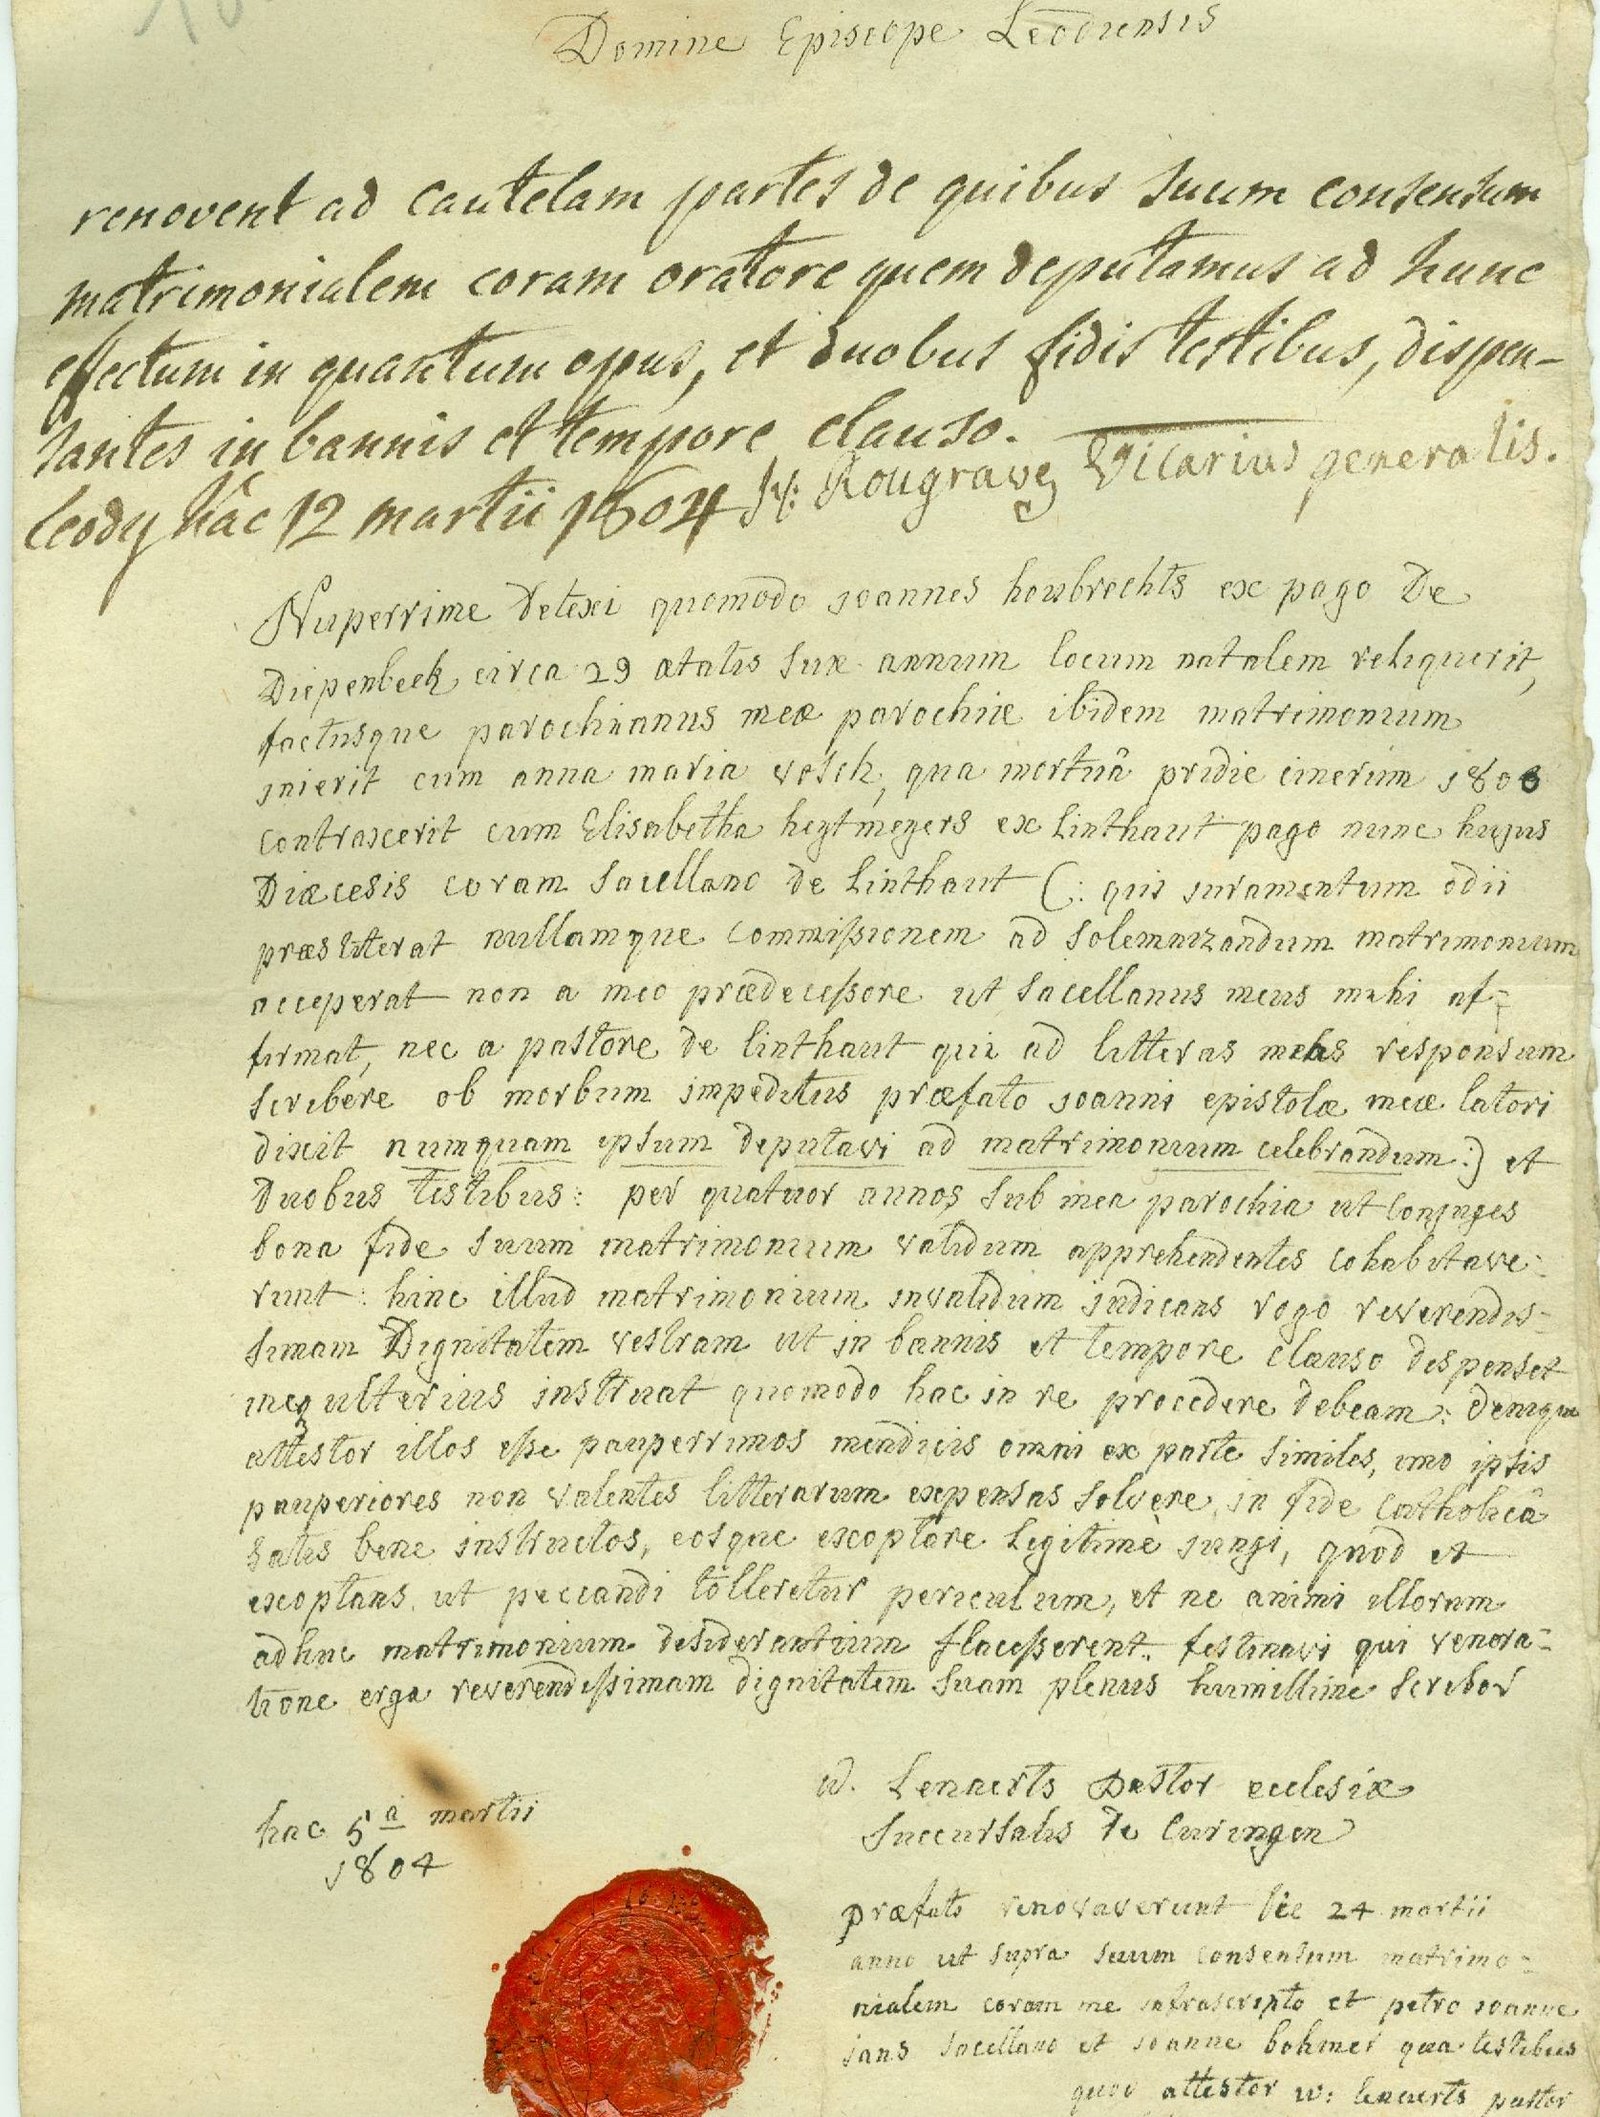 Domine Episcope Leodiensis
renovent ad cautelam partes de quibus suum consensum
matrimonialem coram oratore quem deputamus ad hunc
effectum in quantum opus, et duobus fidis testibus, dispen-
santes in bannis et tempore clauso.
leodij hâc 12 martii 1804 H: Rougrave Vicarius generalis.
Nuperrime detexi quomodo joannes houbrechts ex pago de
Diepenbeek circa 29 ætatis suæ annum locum natalem reliquerit,
factusque parochianus meæ parochiæ ibidem matrimonium
inierit cum anna maria vosch, qua mortuâ pridie cinerum 1800
contraxerit cum Elisabetha heytmeyers ex Linthaut pago nunc hujus
Diæcesis coram sacellano de Linthaut (: qui juramentum odii
præstiterat nullamque commissionem ad solemnizandum matrimonium
acceperat non a meo prædecessore ut sacellanus meus mihi af=
firmat, nec a pastore de linthaut qui ad litteras meas responsum
scribere ob morbum impeditus præfato joanni epistolæ meæ latori
dixit numquam ipsum deputavi ad matrimonium celebrandum :) et
duobus testibus: per quatuor annos sub mea parochia ut conjuges
bona fide suum matrimonium validum apprehendentes cohabitave=
runt: hinc illud matrimonium invalidum judicans rogo reverendis=
simam Dignitatem vestram ut in bannis et tempore clauso dispenset
meq ulterius instruat quomodo hac in re procedere debeam: denique
attestor illos esse pauperrimos mendicis omni ex parte similes, imo ipsis
pauperiores non valentes litterarum expensas solvere, in fide catholicâ
satis bene instructos, eosque exoptare legitimè jungi, quod et
exoptans. ut peccandi tolleretur periculum, et ne animi illorum
adhuc matrimonium desiderantium flaccesserent. festinavi qui venera=
tione erga reverendissimam dignitatem suam plenus humillime scribor
w. Lenaerts Pastor ecclesiæ
succursalis de Curingen
hac 5ª martii
1804
præfati renovaverunt hic 24 martii
anno ut supra suum consensum matrimo=
nialem coram me infrascripto et petro joanne
jans sacellano et joanne bohmer qua testibus
quod attestor w: lenaerts pastor